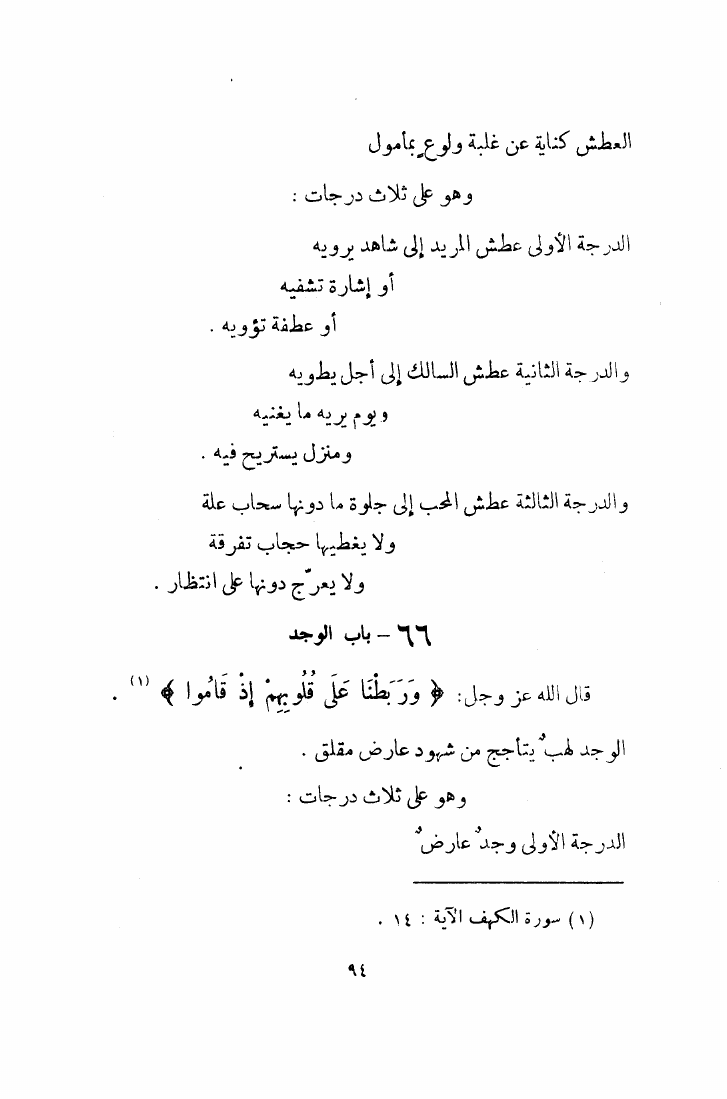 العطش كناية عن غلبة ولوعٍ بمأمول
وهو على ثلاث درجات :
الدرجة الأولى عطش المريد إلى شاهد يرويه
أو إشارة تشفيه
أو عطفة تؤويه .
والدرجة الثانية عطش السالك إلى أجل يطويه
ويوم يريه ما يغنيه
ومنزل يستريح فيه .
والدرجة الثالثة عطش المحب إلى جلوة ما دونها سحاب علة
ولا يغطيها حجاب تفرقة
ولا يعرّج دونها على انتظار .
٦٦ – باب الوجد
قال الله عز وجل: ﴿ وَرَبَطْنَا عَلَى قُلُوبِهِمْ إِذْ قَامُوا ﴾ (١) .
الوجد لهبٌ يتأجج من شهود عارض مقلق .
وهو على ثلاث درجات :
الدرجة الأولى وجدٌ عارضٌ
(١) سورة الكهف الآية : ١٤ .
٩٤